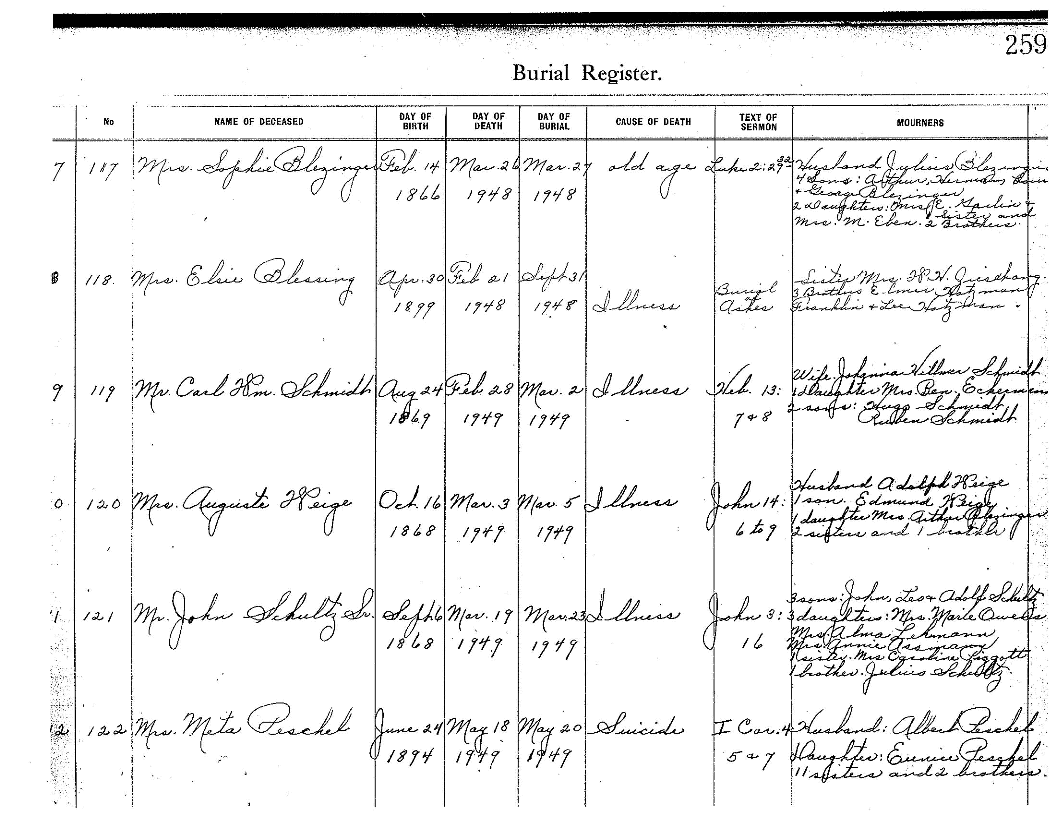 259
Burial Register.
No NAME OF DECEASED DAY OF BIRTH DAY OF DEATH DAY OF BURIAL CAUSE OF DEATH TEXT OF SERMON MOURNERS
7 117 Mrs. Sophie Blezinger Feb. 14 Mar. 26 Mar. 27 old age Luke 2:29-32 Husband Julius Blezinger
1866 1948 1948 4 Sons: Arthur, Herman,
+ George Blezinger
2 Daughters: Mrs. E. +
Mrs. M. Eben. 1 Sister and
2 Brothers
8 118. Mrs. Elsie Blessing Apr. 30 Feb 21 Sept 31 Illness Burial Sister Mrs. H. H.
1899 1948 1948 Ashes 3 Brothers Elmer Hotzman
Franklin + Lee Hotzman.
9 119 Mr. Carl Wm. Schmidt Aug 24 Feb. 28 Mar. 2 Illness Heb. 13: Wife Schmidt
1869 1949 1949 7 & 8 1 Daughter Mrs. Ben. Eckermann
2 sons: Hugo Schmidt
Ruben Schmidt
0 120 Mrs. Auguste Weige Oct. 16 Mar. 3 Mar. 5 Illness John 14: Husband Adolph Weige
1868 1949 1949 6 to 9 1 son. Edmund Weige
1 daughter Mrs. Arthur Blezinger
2 sisters and 1 brother
1 121 Mr. John Schultz Sr. Sept 6 Mar. 19 Mar. 23 Illness John 3: 3 sons: John, Leo + Adolf Schultz
1868 1949 1949 16 3 daughters: Mrs. Marie Owens
Mrs. Alma Lehmann
Mrs. Annie Assmann
1 sister. Mrs Caroline Piggott
1 brother. Julius Schultz.
2 122 Mrs. Meta Peschel June 24 May 18 May 20 Suicide I Cor. 4 Husband: Albert Peschel
1894 1949 1949 5 & 7 1 Daughter: Eunice Peschel
11 sisters and 2 brothers.